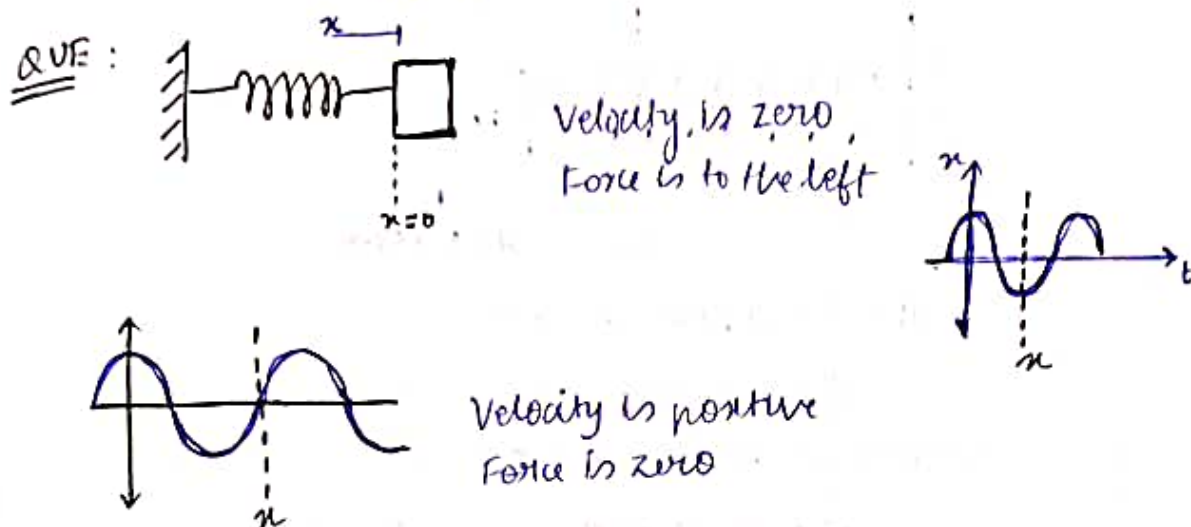 QUE :
x
x=0
Velocity is zero
Force is to the left
x
t
x
Velocity is positive
Force is zero
x